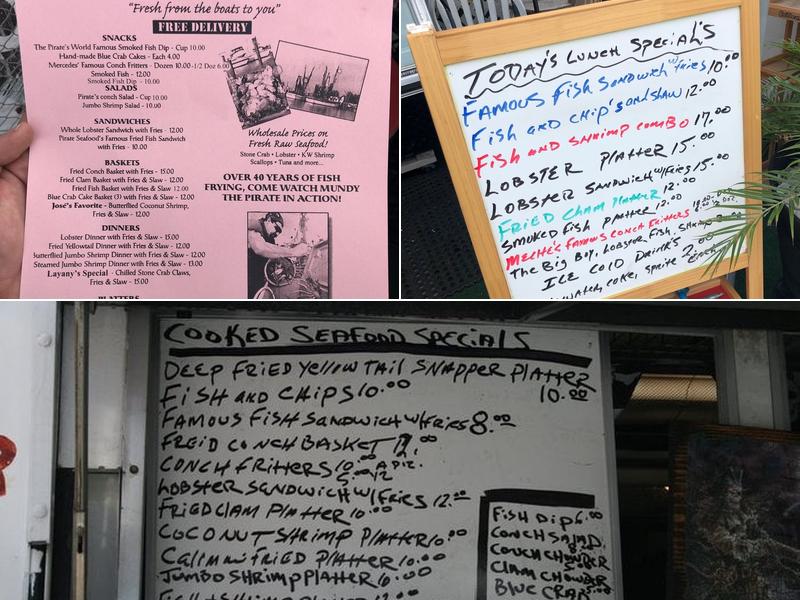 "Fresh from the boats to you"
FREE DELIVERY
SNACKS
The Pirate's World Famous Smoked Fish Dip - Cup 10.00
Hand-made Blue Crab Cakes - Each 4.00
Mercedes' Famous Conch Fritters - Dozen 10.00 -1/2 Doz 6.00
Smoked Fish - 12.00
Smoked Fish Dip - 10.00
SALADS
Pirate's conch Salad - Cup 10.00
Jumbo Shrimp Salad - 10.00
SANDWICHES
Whole Lobster Sandwich with Fries - 12.00
Pirate Seafood's Famous Fried Fish Sandwich
with Fries - 10.00
BASKETS
Fried Conch Basket with Fries - 15.00
Fried Clam Basket with Fries & Slaw - 12.00
Fried Fish Basket with Fries & Slaw 12.00
Blue Crab Cake Basket (3) with Fries & Slaw - 12.00
Jose's Favorite - Butterflied Coconut Shrimp,
Fries & Slaw - 12.00
DINNERS
Lobster Dinner with Fries & Slaw - 15.00
Fried Yellowtail Dinner with Fries & Slaw - 12.00
Butterflied Jumbo Shrimp Dinner with Fries & Slaw - 12.00
Steamed Jumbo Shrimp Dinner with Fries & Slaw - 13.00
Layany's Special - Chilled Stone Crab Claws,
Fries & Slaw - 15.00
PLATTERS
Wholesale Prices on
Fresh Raw Seafood!
Stone Crab • Lobster • KW Shrimp
Scallops • Tuna and more...
OVER 40 YEARS OF FISH
FRYING, COME WATCH MUNDY
THE PIRATE IN ACTION!
TODAY'S LUNCH SPECIAL'S
FAMOUS FISH SANDWICH w/FRIES 10.00
FISH AND CHIP'S AND SLAW 12.00
FISH AND SHRIMP COMBO 17.00
LOBSTER PLATTER 15.00
LOBSTER SANDWICH W/FRIES 15.00
FRIED CLAM PLATTER 12.00
SMOKED FISH PLATTER 12.00
MECHE'S FAMOUS CONCH FRITTERS
THE BIG BOY, LOBSTER, FISH, SHRIMP
ICE COLD DRINK'S 2.00
WATER, COKE, SPRITE
COOKED SEAFOOD SPECIALS
DEEP FRIED YELLOW TAIL SNAPPER PLATTER
10.00
FISH AND CHIPS 10.00
FAMOUS FISH SANDWICH W/FRIES 8.00
FREID CONCH BASKET 12.00
CONCH FRITTERS 10.00 A DIZ.
LOBSTER SANDWICH W/FRIES 12.00
FRIED CLAM PLATTER 10.00
COCONUT SHRIMP PLATTER 10.00
FRIED PLATTER 10.00
JUMBO SHRIMP PLATTER 10.00
FISH DIP 6.00
CONCH SALAD
CONCH CHOWDER
CLAM CHOWDER
BLUE CRAB